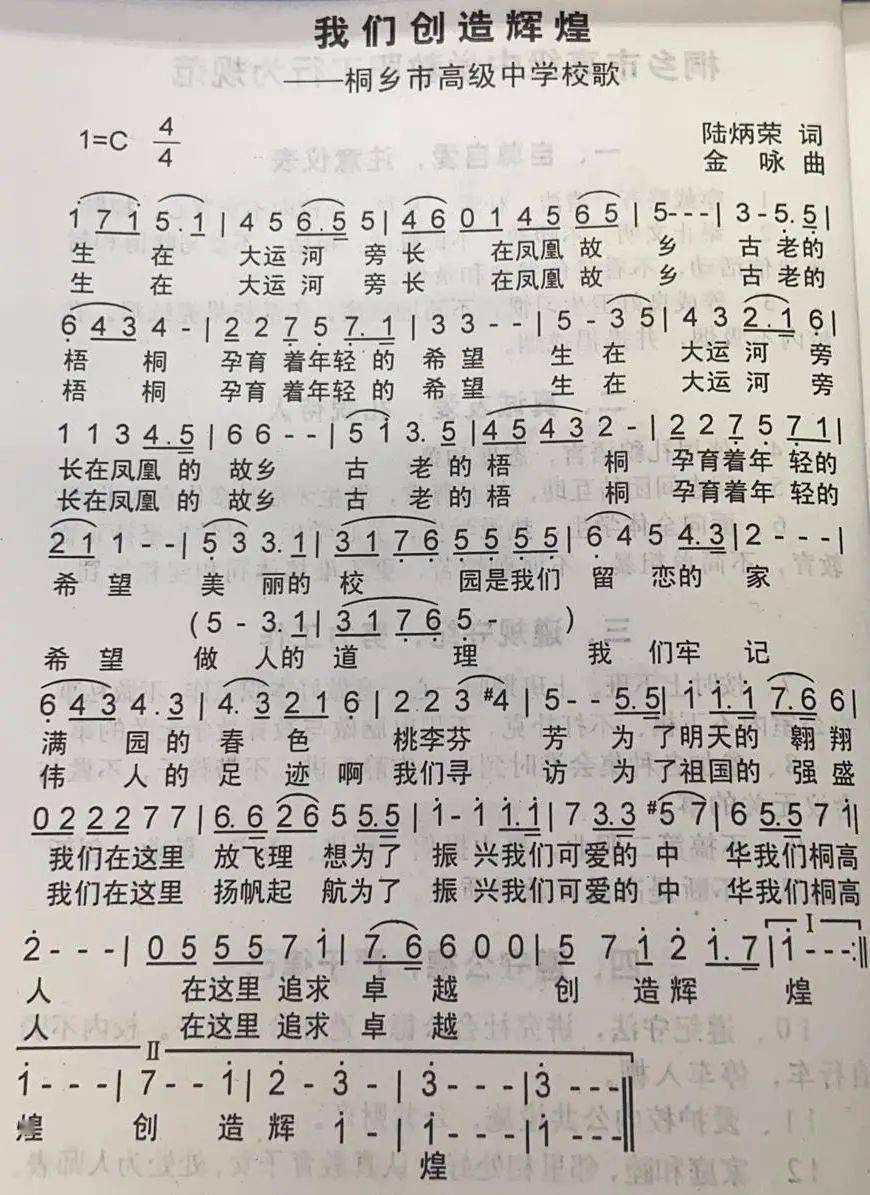 我们创造辉煌
——桐乡市高级中学校歌
1=C 4/4
陆炳荣 词
金 咏 曲
1 7 1 5 . 1 | 4 5 6 . 5 5 | 4 6 0 1 4 5 6 5 | 5 - - - | 3 - 5 . 5 |
生 在 大运 河 旁 长 在凤凰 故 乡 古 老的
生 在 大运 河 旁 长 在凤凰 故 乡 古 老的
6 4 3 4 - | 2 2 7 5 7 . 1 | 3 3 - - | 5 - 3 5 | 4 3 2 . 1 6 |
梧 桐 孕育 着年轻 的 希 望 生 在 大运 河 旁
梧 桐 孕育 着年轻 的 希 望 生 在 大运 河 旁
1 1 3 4 . 5 | 6 6 - - | 5 1 3 . 5 | 4 5 4 3 2 - | 2 2 7 5 7 1 |
长在凤凰 的 故乡 古 老 的 梧 桐 孕育着年 轻的
长在凤凰 的 故乡 古 老 的 梧 桐 孕育着年 轻的
2 1 1 - - | 5 3 3 . 1 | 3 1 7 6 5 5 5 5 | 6 4 5 4 . 3 | 2 - - - |
希 望 美 丽的 校 园是我们 留 恋的 家
( 5 - 3 . 1 | 3 1 7 6 5 - )
希 望 做 人的 道 理 我 们牢 记
6 4 3 4 . 3 | 4 . 3 2 1 6 | 2 2 3 #4 | 5 - - 5 . 5 | 1 1 . 1 7 . 6 6 |
满 园 的 春 色 桃李芬 芳 为 了明天的 翱 翔
伟 人 的 足 迹 啊 我们寻 访 为 了祖国的 强 盛
0 2 2 2 7 7 | 6 . 6 2 6 5 5 . 5 | 1 - 1 1 . 1 | 7 3 . 3 #5 7 | 6 5 . 5 7 1 |
我们在这里 放飞理 想为了 振 兴我们可爱的 中 华我们桐高
我们在这里 扬帆起 航为了 振 兴我们可爱的 中 华我们桐高
2 - - - | 0 5 5 5 7 1 | 7 . 6 6 0 0 | 5 7 1 2 1 . 7 | I 1 - - - :‖
人 在这里 追求 卓 越 创 造辉 煌
人 在这里 追求 卓 越
II
1 - - - | 7 - - 1 | 2 - 3 - | 3 - - - | 3 - - - ‖
煌 创 造 辉 1 - 1 - | 1 - - - | 1 - - - ‖
煌